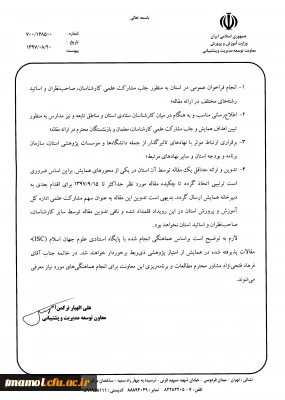 باسمه تعالی
جمهوری اسلامی ایران
وزارت آموزش و پرورش
معاونت توسعه مدیریت و پشتیبانی
شماره : ۷۰۰/۱۶۸۵۰۰
تاریخ : ۱۳۹۷/۰۸/۲۰
پیوست :
۱- انجام فراخوان عمومی در استان به منظور جلب مشارکت علمی کارشناسان، صاحب‌نظران و اساتید
رشته‌های مختلف در ارائه مقاله؛
۲- اطلاع‌رسانی مناسب و به هنگام در میان کارشناسان ستادی استان و مناطق تابعه و نیز مدارس به منظور
تبیین اهداف همایش و جلب مشارکت علمی کارشناسان، معلمان و بازنشستگان محترم در ارائه مقاله؛
۳- برقراری ارتباط موثر با نهادهای تاثیرگذار از جمله دانشگاه‌ها و موسسات پژوهشی استان، سازمان
برنامه و بودجه استان و سایر نهادهای مرتبط؛
۴- تدوین و ارائه حداقل یک مقاله توسط آن استان در یکی از محورهای همایش. براین اساس ضروری
است ترتیبی اتخاذ گردد تا چکیده مقاله مورد نظر حداکثر تا ۱۳۹۷/۹/۱۵ برای اقدام بعدی به
دبیرخانه همایش ارسال گردد. بدیهی است تدوین این مقاله به عنوان سهم مشارکت علمی اداره کل
آموزش و پرورش استان در این رویداد قلمداد شده و نافی تدوین مقاله توسط سایر کارشناسان،
صاحب‌نظران و اساتید استان نخواهد بود.
لازم به توضیح است براساس هماهنگی انجام شده با پایگاه استنادی علوم جهان اسلام (ISC)،
مقالات پذیرفته شده در همایش از امتیاز پژوهشی ذیربط برخوردار خواهند شد. در خاتمه جناب آقای
فرهاد فتحی‌نژاد مشاور محترم مطالعات و برنامه‌ریزی این معاونت برای انجام هماهنگی‌های مورد نیاز معرفی
می‌شوند.
علی الهیار ترکمن
معاون توسعه مدیریت و پشتیبانی
نشانی : تهران - میدان فردوسی - خیابان شهید سپهبد قرنی - نرسیده به چهار راه سمیه - ساختمان
تلفن :
imamol.cfu.ac.ir